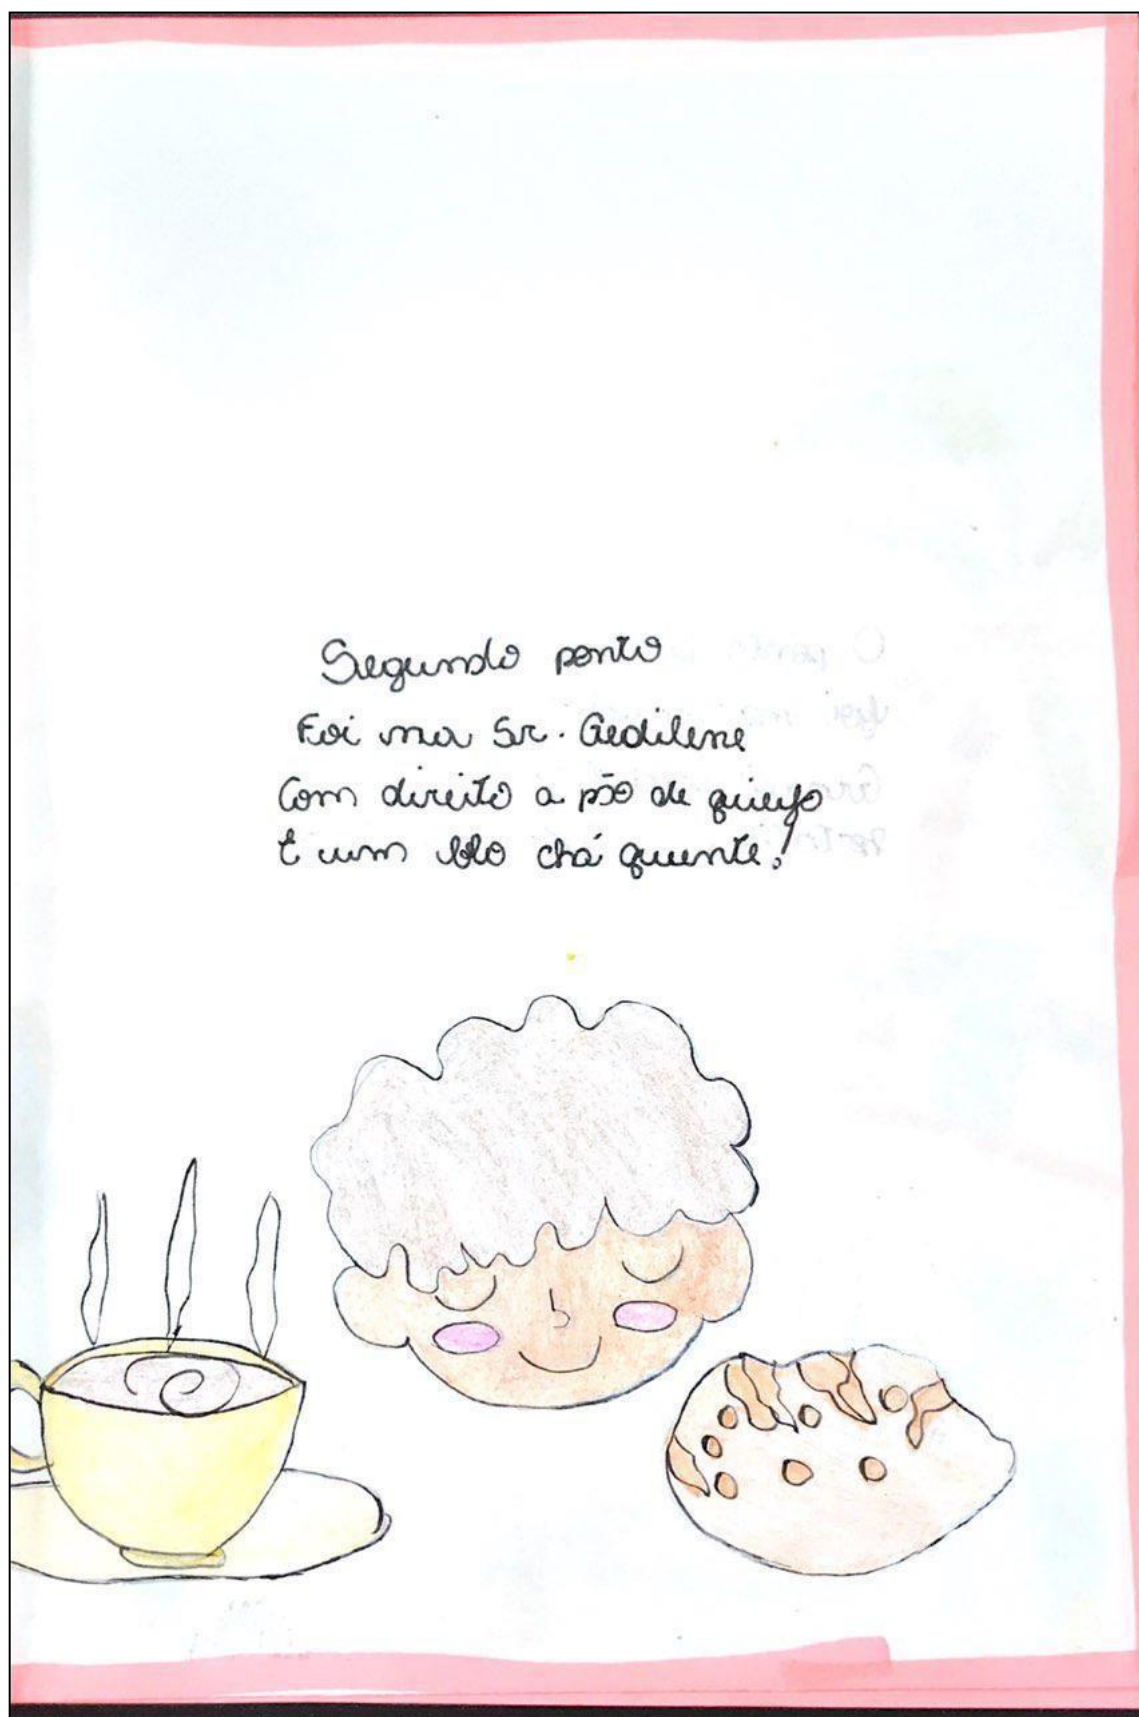 Segundo ponto
Foi na Sr. Gedilene
Com direito a pão de queijo
E um belo chá quente!